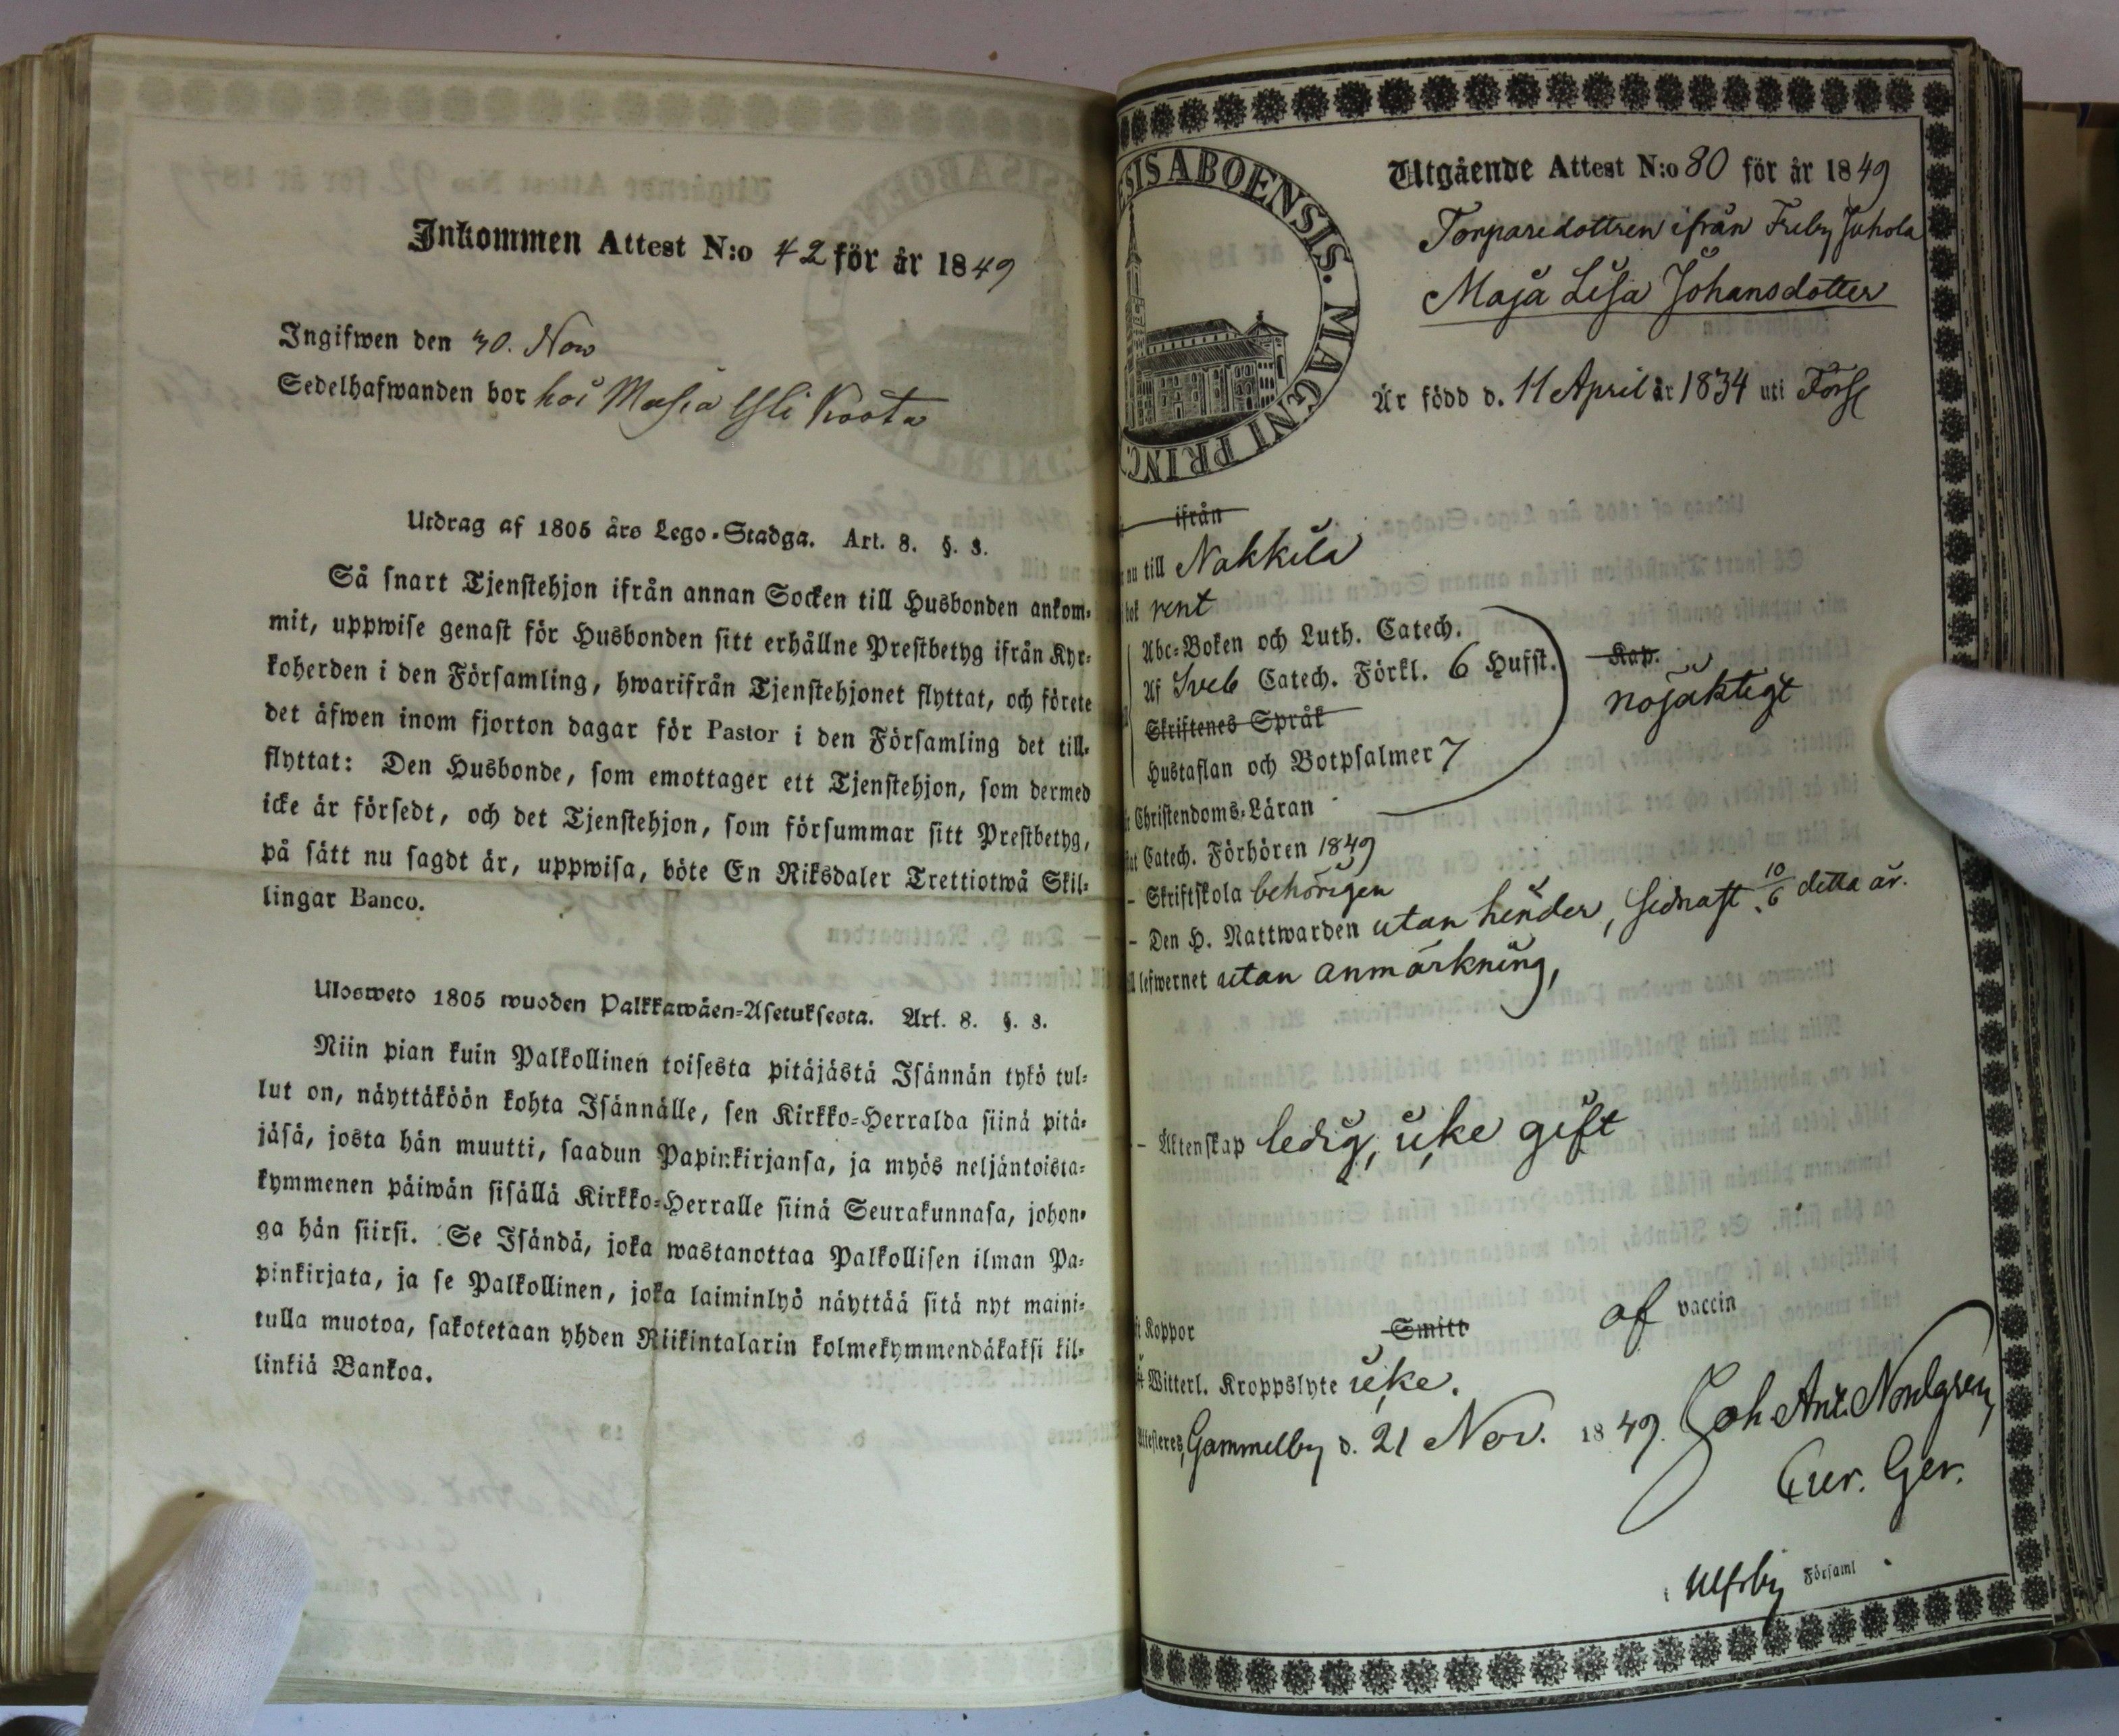 Inkommen Attest N:o 42 för år 1849
Ingifwen den 30. Nov
Sedelhafwanden bor hos Masia Yli Koota
Utdrag af 1805 års Lego-Stadga. Art. 8. §. 3.
Så snart Tjenstehjon ifrån annan Socken till Husbonden ankom-
mit, uppwise genast för Husbonden sitt erhållne Prestbetyg ifrån Kyr-
koherden i den Församling, hwarifrån Tjenstehjonet flyttat, och förete
det äfwen inom fjorton dagar för Pastor i den Församling det till-
flyttat: Den Husbonde, som emottager ett Tjenstehjon, som dermed
icke är försedt, och det Tjenstehjon, som försummar sitt Prestbetyg,
på sätt nu sagdt är, uppwisa, böte En Riksdaler Trettiotwå Skil-
lingar Banco.
Ulosweto 1805 wuoden Palkkawäen-Asetuksesta. Art. 8. §. 3.
Niin pian kuin Palkollinen toisesta pitäjästä Isännän tykö tul-
lut on, näyttäköön kohta Isännälle, sen Kirkko-Herralda siinä pitä-
jäsä, josta hän muutti, saadun Papinkirjansa, ja myös neljäntoista-
kymmenen päiwän sisällä Kirkko-Herralle siinä Seurakunnasa, johon-
ga hän siirsi. Se Isändä, joka wastanottaa Palkollisen ilman Pa-
pinkirjata, ja se Palkollinen, joka laiminlyö näyttää sitä nyt maini-
tulla muotoa, sakotetaan yhden Riikintalarin kolmekymmendäkaksi kil-
linkiä Bankoa.
ESIS ABOENSIS. MAGNI PRINC.
Utgående Attest N:o 80 för år 1849
Torparedottren ifrån Friby Juhola
Maja Lisa Johansdotter
Är född d. 11 April år 1834 uti Förs
ifrån
nu till Nakkila
bok rent
Abc-Boken och Luth. Catech.
Af Sveb Catech. Förkl. 6 Hufst. Kap.
nöjaktigt
Skriftenes Språk
Hustaflan och Botpsalmer 7
Christendoms-Läran
Catech. Förhören 1849
- Skriftskola behörigen
- Den H. Nattwarden utan hinder, sednast 10/6 detta år.
lefwernet utan anmärkning,
- Äktenskap ledig, icke gift
Koppor Smitt af vaccin
Witterl. Kroppslyte icke.
Gammelby d. 21 Nov. 1849. Joh Ant. Nordgren
Cur. Ger.
i Ulfsby Församl